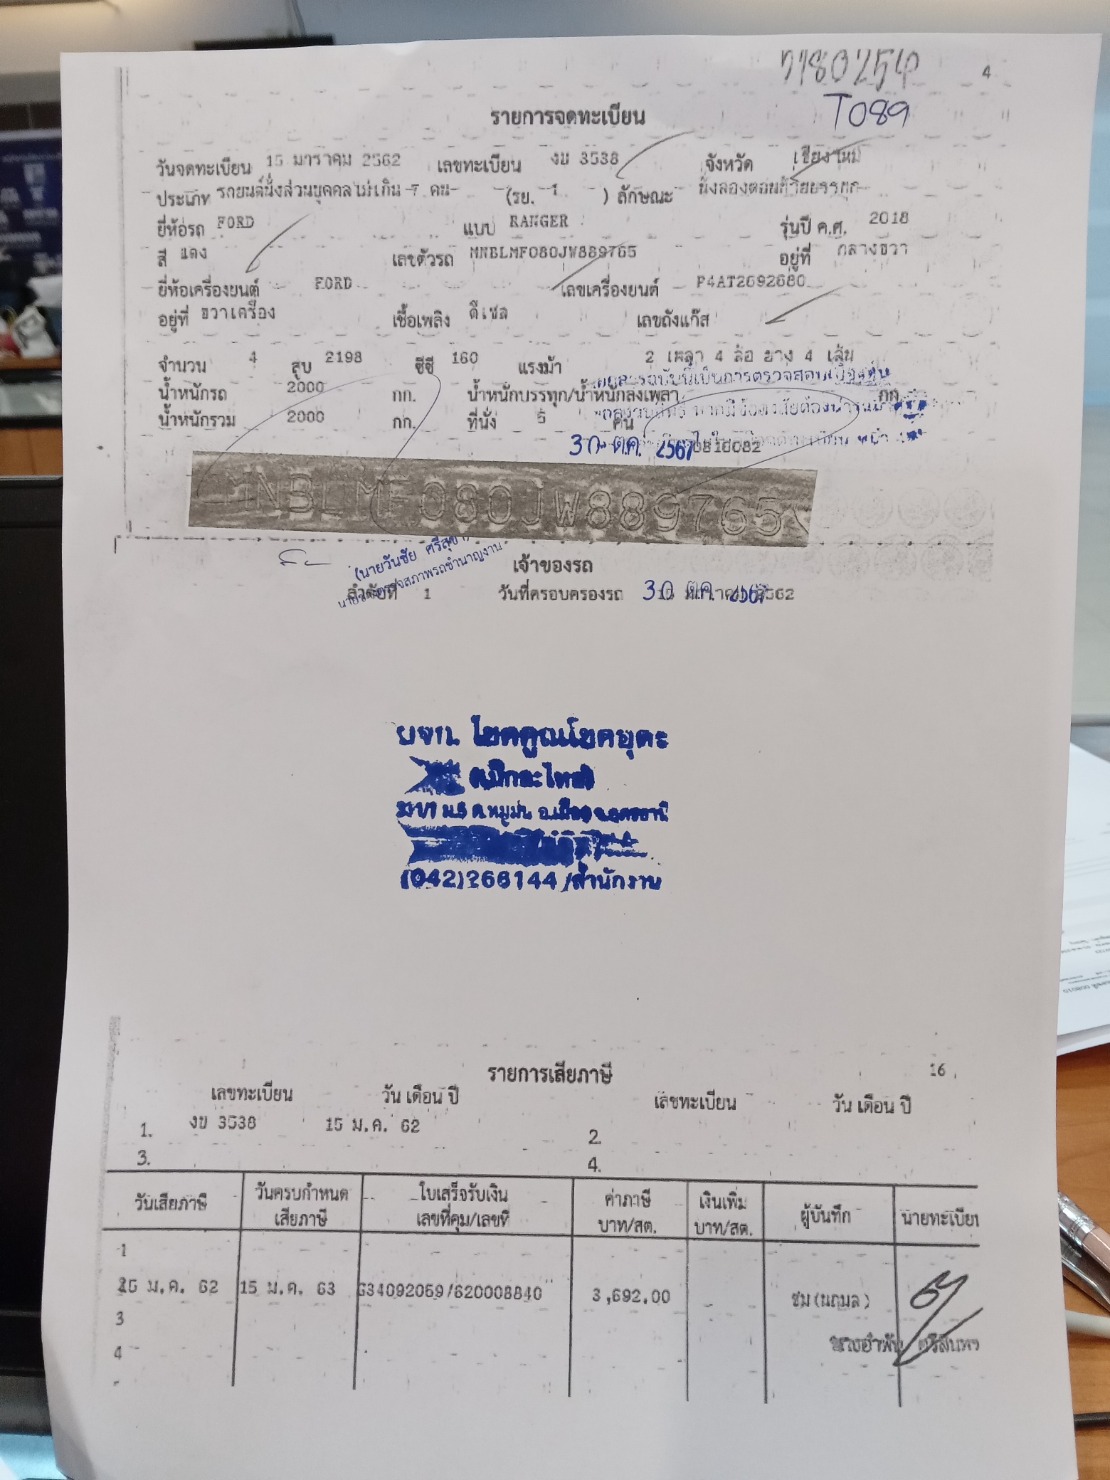 4
T089
รายการจดทะเบียน
วันจดทะเบียน 15 มกราคม 2562 เลขทะเบียน งข 3538 จังหวัด เชียงใหม่
ประเภท รถยนต์นั่งส่วนบุคคลไม่เกิน 7 คน (รย. 1 ) ลักษณะ นั่งสองตอนท้ายบรรทุก
ยี่ห้อรถ FORD แบบ RANGER รุ่นปี ค.ศ. 2018
สี แดง เลขตัวรถ MNBLMF080JW889765 อยู่ที่ กลางขวา
ยี่ห้อเครื่องยนต์ FORD เลขเครื่องยนต์ P4AT2692680
อยู่ที่ ขวาเครื่อง เชื้อเพลิง ดีเซล เลขถังแก๊ส
จำนวน 4 สูบ 2198 ซีซี 160 แรงม้า 2 เพลา 4 ล้อ ยาง 4 เส้น
น้ำหนักรถ 2000 กก. น้ำหนักบรรทุก/น้ำหนักลงเพลา กก.
น้ำหนักรวม 2000 กก. ที่นั่ง 5 คน
30 ต.ค. 2567
MNBLMF080JW889765
(นายวันชัย ศรีสุข)
เจ้าของรถ
ลำดับที่ 1 วันที่ครอบครองรถ 30 ต.ค. 2567 2562
ยจก. โชคคูณโชคอุดะ
(042)266144/สำนักงาน
16
รายการเสียภาษี
เลขทะเบียน วัน เดือน ปี เลขทะเบียน วัน เดือน ปี
1. งข 3538 15 ม.ค. 62 2.
3. 4.
วันเสียภาษี วันครบกำหนดเสียภาษี ใบเสร็จรับเงิน เลขที่คุม/เลขที่ ค่าภาษี บาท/สต. เงินเพิ่ม บาท/สต. ผู้บันทึก นายทะเบียน
1
25 ม.ค. 62 15 ม.ค. 63 634092059/620008840 3,692.00 ชม(นฤมล)
3
4